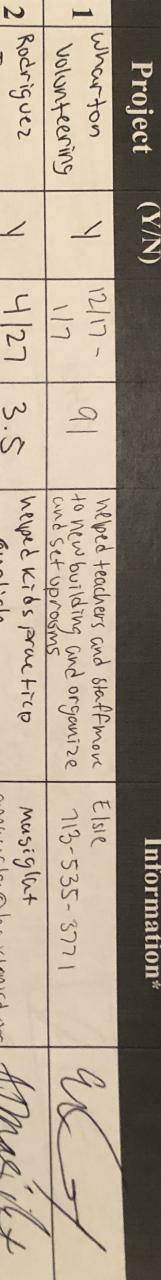 Project
(Y/N)
Information*
1
Wharton
Volunteering
Y
12/17 -
1/7
91
helped teachers and staff move
to new building and organize
and set up rooms
Elsie
713-535-3771
2
Rodriguez
Y
4/27
3.5
helped kids practice
musiglut